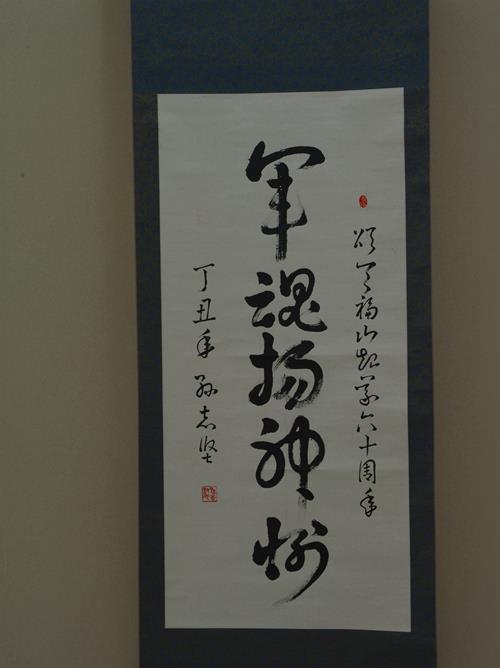 颂天福山起义六十周年
军魂扬神州
丁丑年 孙志坚